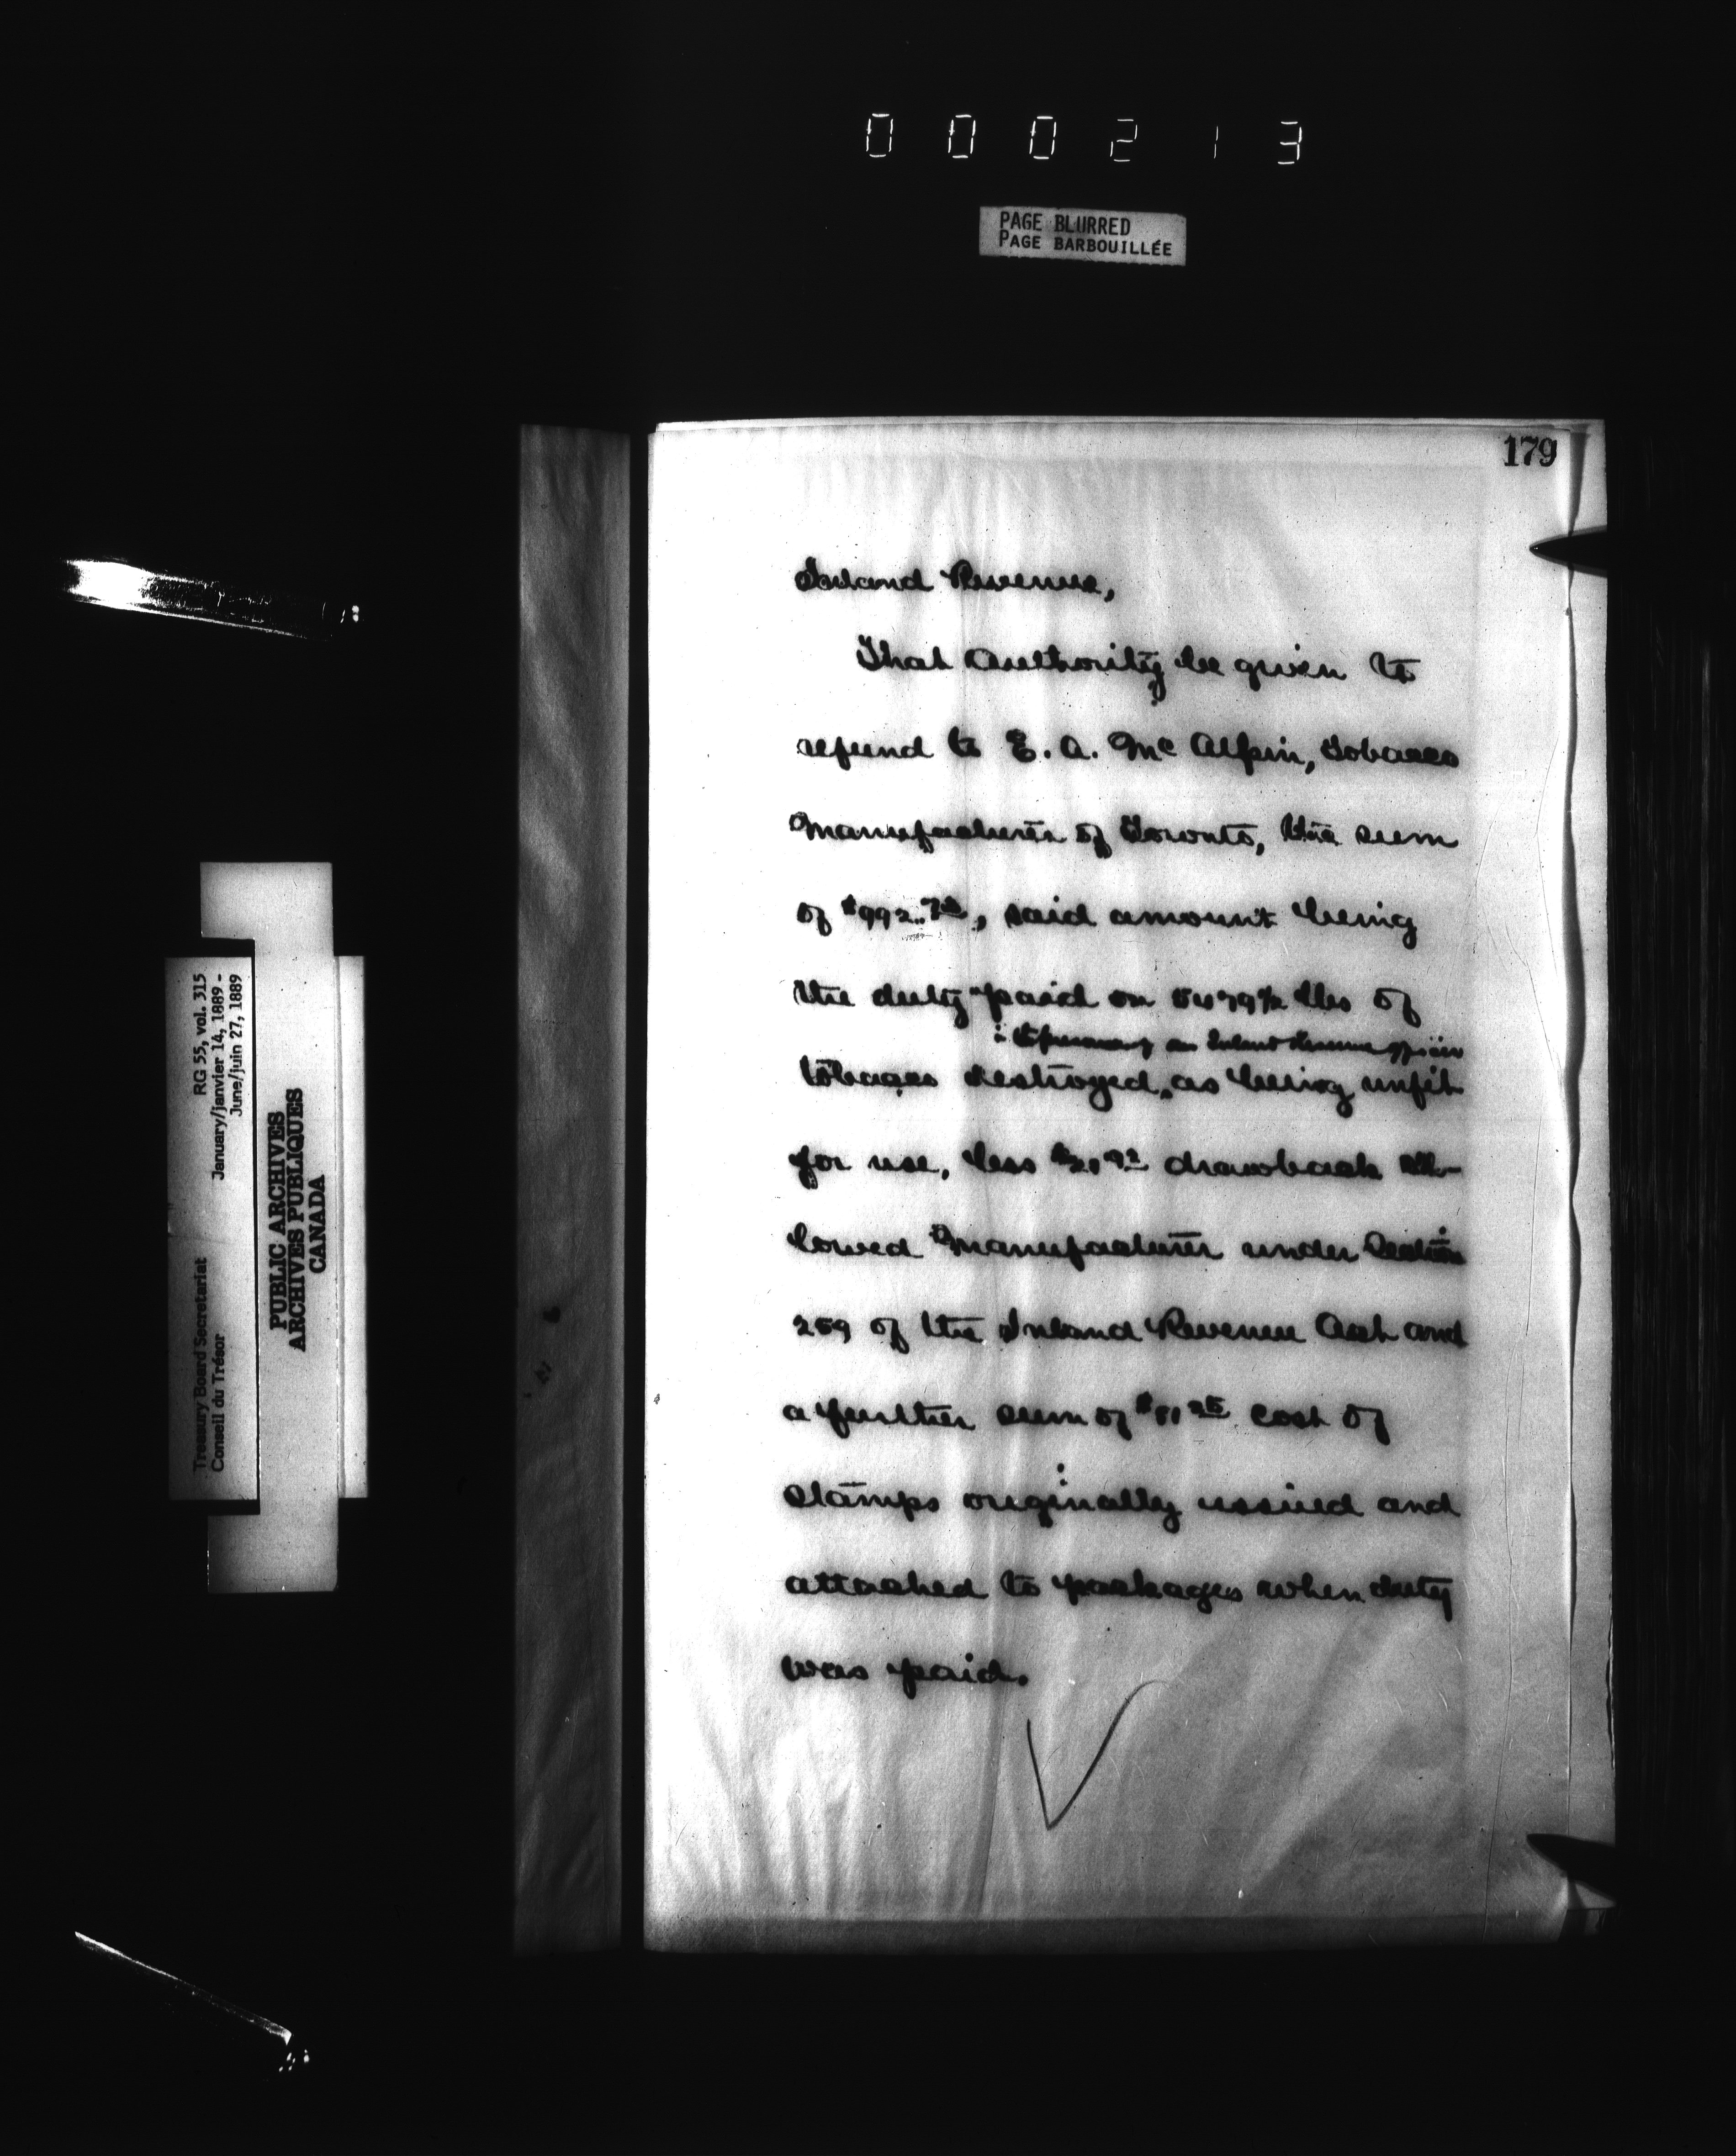 000213
PAGE BLURRED
PAGE BARBOUILLÉE
179
Inland Revenue,
That Authority be given to
refund to E. A. Mc Alpin, Tobacco
Manufacturer of Toronto, the sum
of $992., said amount being
the duty paid on lbs of
in presence of an Inland Revenue officer
tobacco destroyed, as being unfit
for use, less $20.92 drawback al-
lowed Manufacturer under Section
259 of the Inland Revenue Act and
a further sum of cost of
stamps originally issued and
attached to packages when duty
was paid.
Treasury Board Secretariat
Conseil du Trésor
RG 55, vol. 315
January/janvier 14, 1889 -
June/juin 27, 1889
PUBLIC ARCHIVES
ARCHIVES PUBLIQUES
CANADA